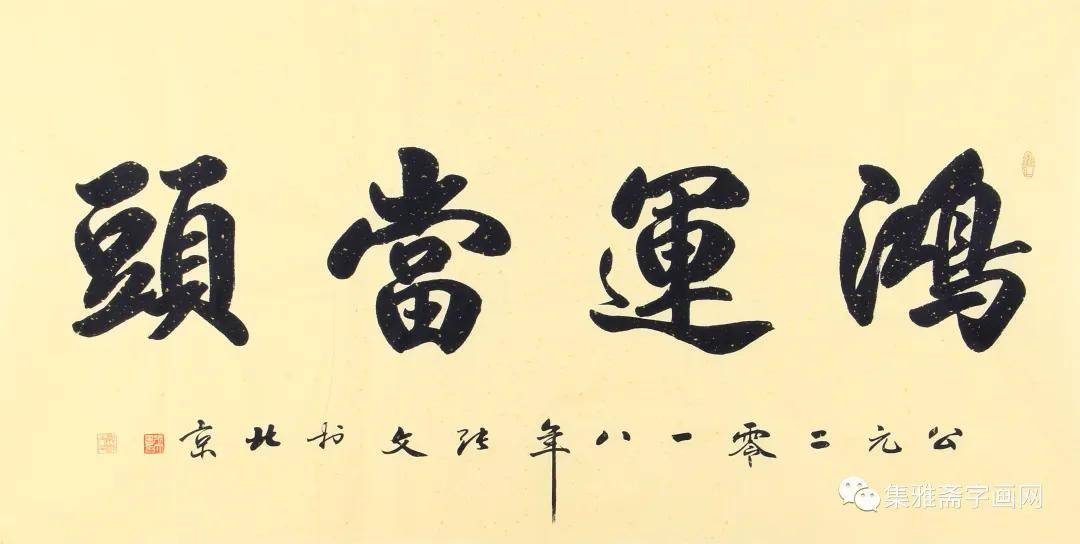 鸿運當頭
公元二零一八年张文书北京
集雅斋字画网